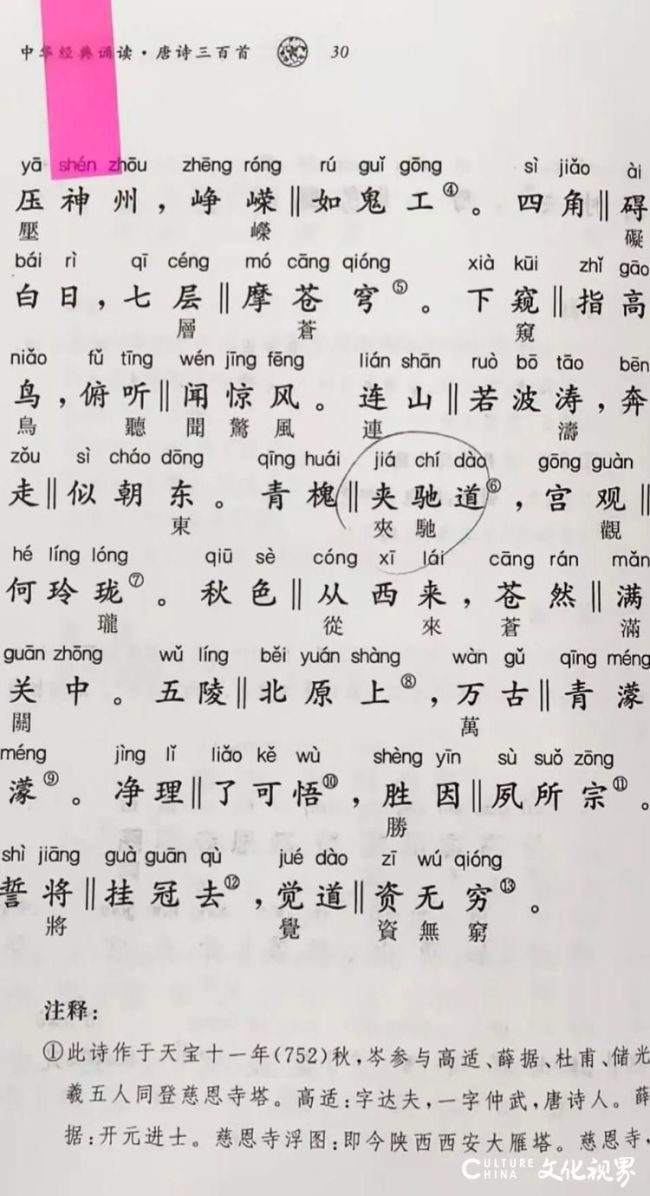 中华经典诵读·唐诗三百首 30
yā shén zhōu zhēng róng rú guǐ gōng sì jiǎo ài
压神州，峥嵘‖如鬼工④。四角‖碍
壓 嶸 礙
bái rì qī céng mó cāng qióng xià kuī zhǐ gāo
白日，七层‖摩苍穹⑤。下窥‖指高
層 蒼 窺
niǎo fǔ tīng wén jīng fēng lián shān ruò bō tāo bēn
鸟，俯听‖闻惊风。连山‖若波涛，奔
鳥 聽 聞 驚 風 連 濤
zǒu sì cháo dōng qīng huái jiá chí dào gōng guàn
走‖似朝东。青槐‖夹驰道⑥，宫观‖
東 夾 馳 觀
hé líng lóng qiū sè cóng xī lái cāng rán mǎn
何玲珑⑦。秋色‖从西来，苍然‖满
瓏 從 來 蒼 滿
guān zhōng wǔ líng běi yuán shàng wàn gǔ qīng méng
关中。五陵‖北原上⑧，万古‖青濛
關 萬
méng jìng lǐ liǎo kě wù shèng yīn sù suǒ zōng
濛⑨。净理‖了可悟⑩，胜因‖夙所宗⑪。
勝
shì jiāng guà guān qù jué dào zī wú qióng
誓将‖挂冠去⑫，觉道‖资无穷⑬。
將 覺 資 無 窮
注释：
①此诗作于天宝十一年(752)秋，岑参与高适、薛据、杜甫、储光
羲五人同登慈恩寺塔。高适：字达夫，一字仲武，唐诗人。薛
据：开元进士。慈恩寺浮图：即今陕西西安大雁塔。慈恩寺，
CULTURE CHINA 文化视界